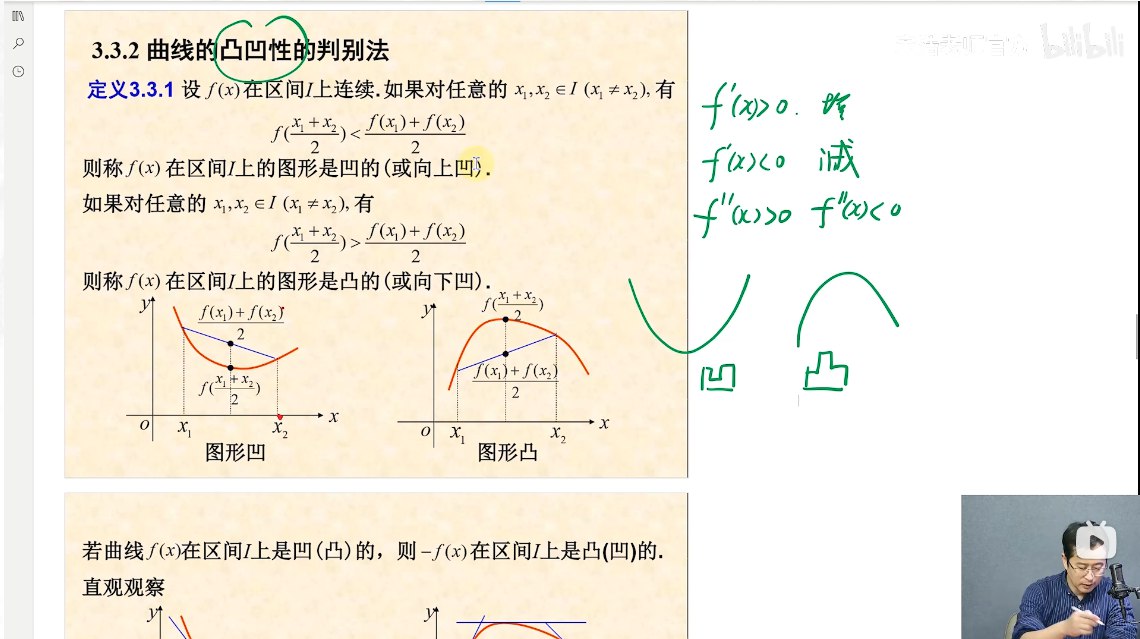 3.3.2 曲线的凸凹性的判别法
定义3.3.1 设 f(x) 在区间I上连续.如果对任意的 x₁,x₂∈I (x₁≠x₂),有
f((x₁+x₂)/2) < (f(x₁)+f(x₂))/2
则称 f(x) 在区间I上的图形是凹的(或向上凹).
如果对任意的 x₁,x₂∈I (x₁≠x₂),有
f((x₁+x₂)/2) > (f(x₁)+f(x₂))/2
则称 f(x) 在区间I上的图形是凸的(或向下凹).
y
(f(x₁)+f(x₂))/2
f((x₁+x₂)/2)
o x₁ x₂ x
图形凹
y
f((x₁+x₂)/2)
(f(x₁)+f(x₂))/2
o x₁ x₂ x
图形凸
f'(x)>0. 增
f'(x)<0 减
f''(x)>0 f''(x)<0
凹 凸
若曲线f(x)在区间I上是凹(凸)的，则−f(x)在区间I上是凸(凹)的.
直观观察
y
y
bilibili